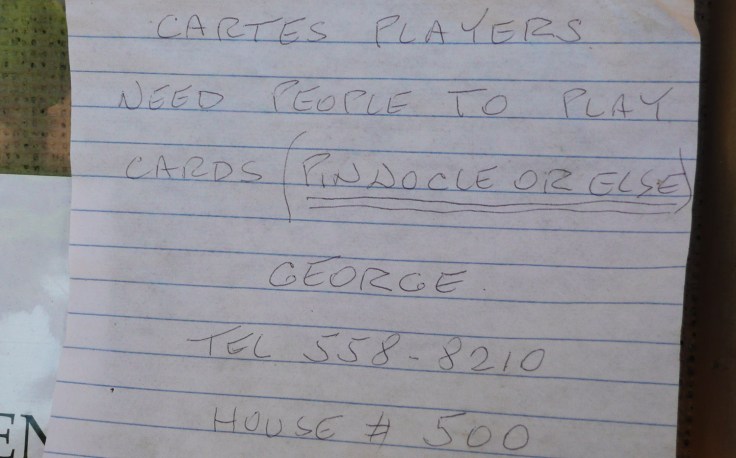 CARTES PLAYERS
NEED PEOPLE TO PLAY
CARDS (PINNOCLE OR ELSE)
GEORGE.
TEL 558-8210
HOUSE # 500
EN